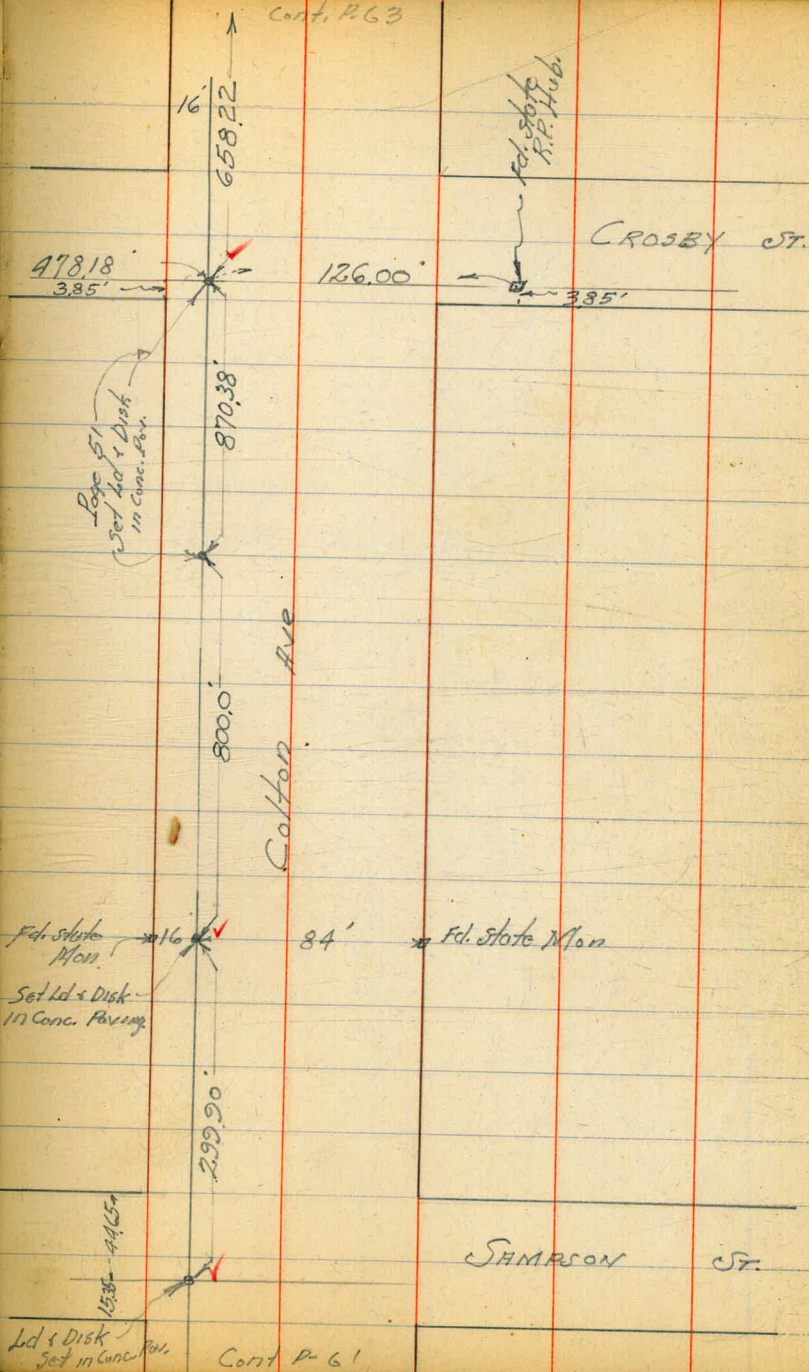 Cont. P. 63
16'
658.22
Fd. State
R.P. Hub.
CROSBY ST.
478.18'
3.85'
126.00'
3.85'
870.38'
Page 51
Set Ld & Disk
in Conc. Pav.
800.0'
Colton Ave
Fd. State
Mon.
16
84'
Fd. State Mon
Set Ld & Disk
in Conc. Paving
299.90'
15.35 44.65
SAMPSON ST.
Ld & Disk
Set in Conc. Pav.
Cont P- 61